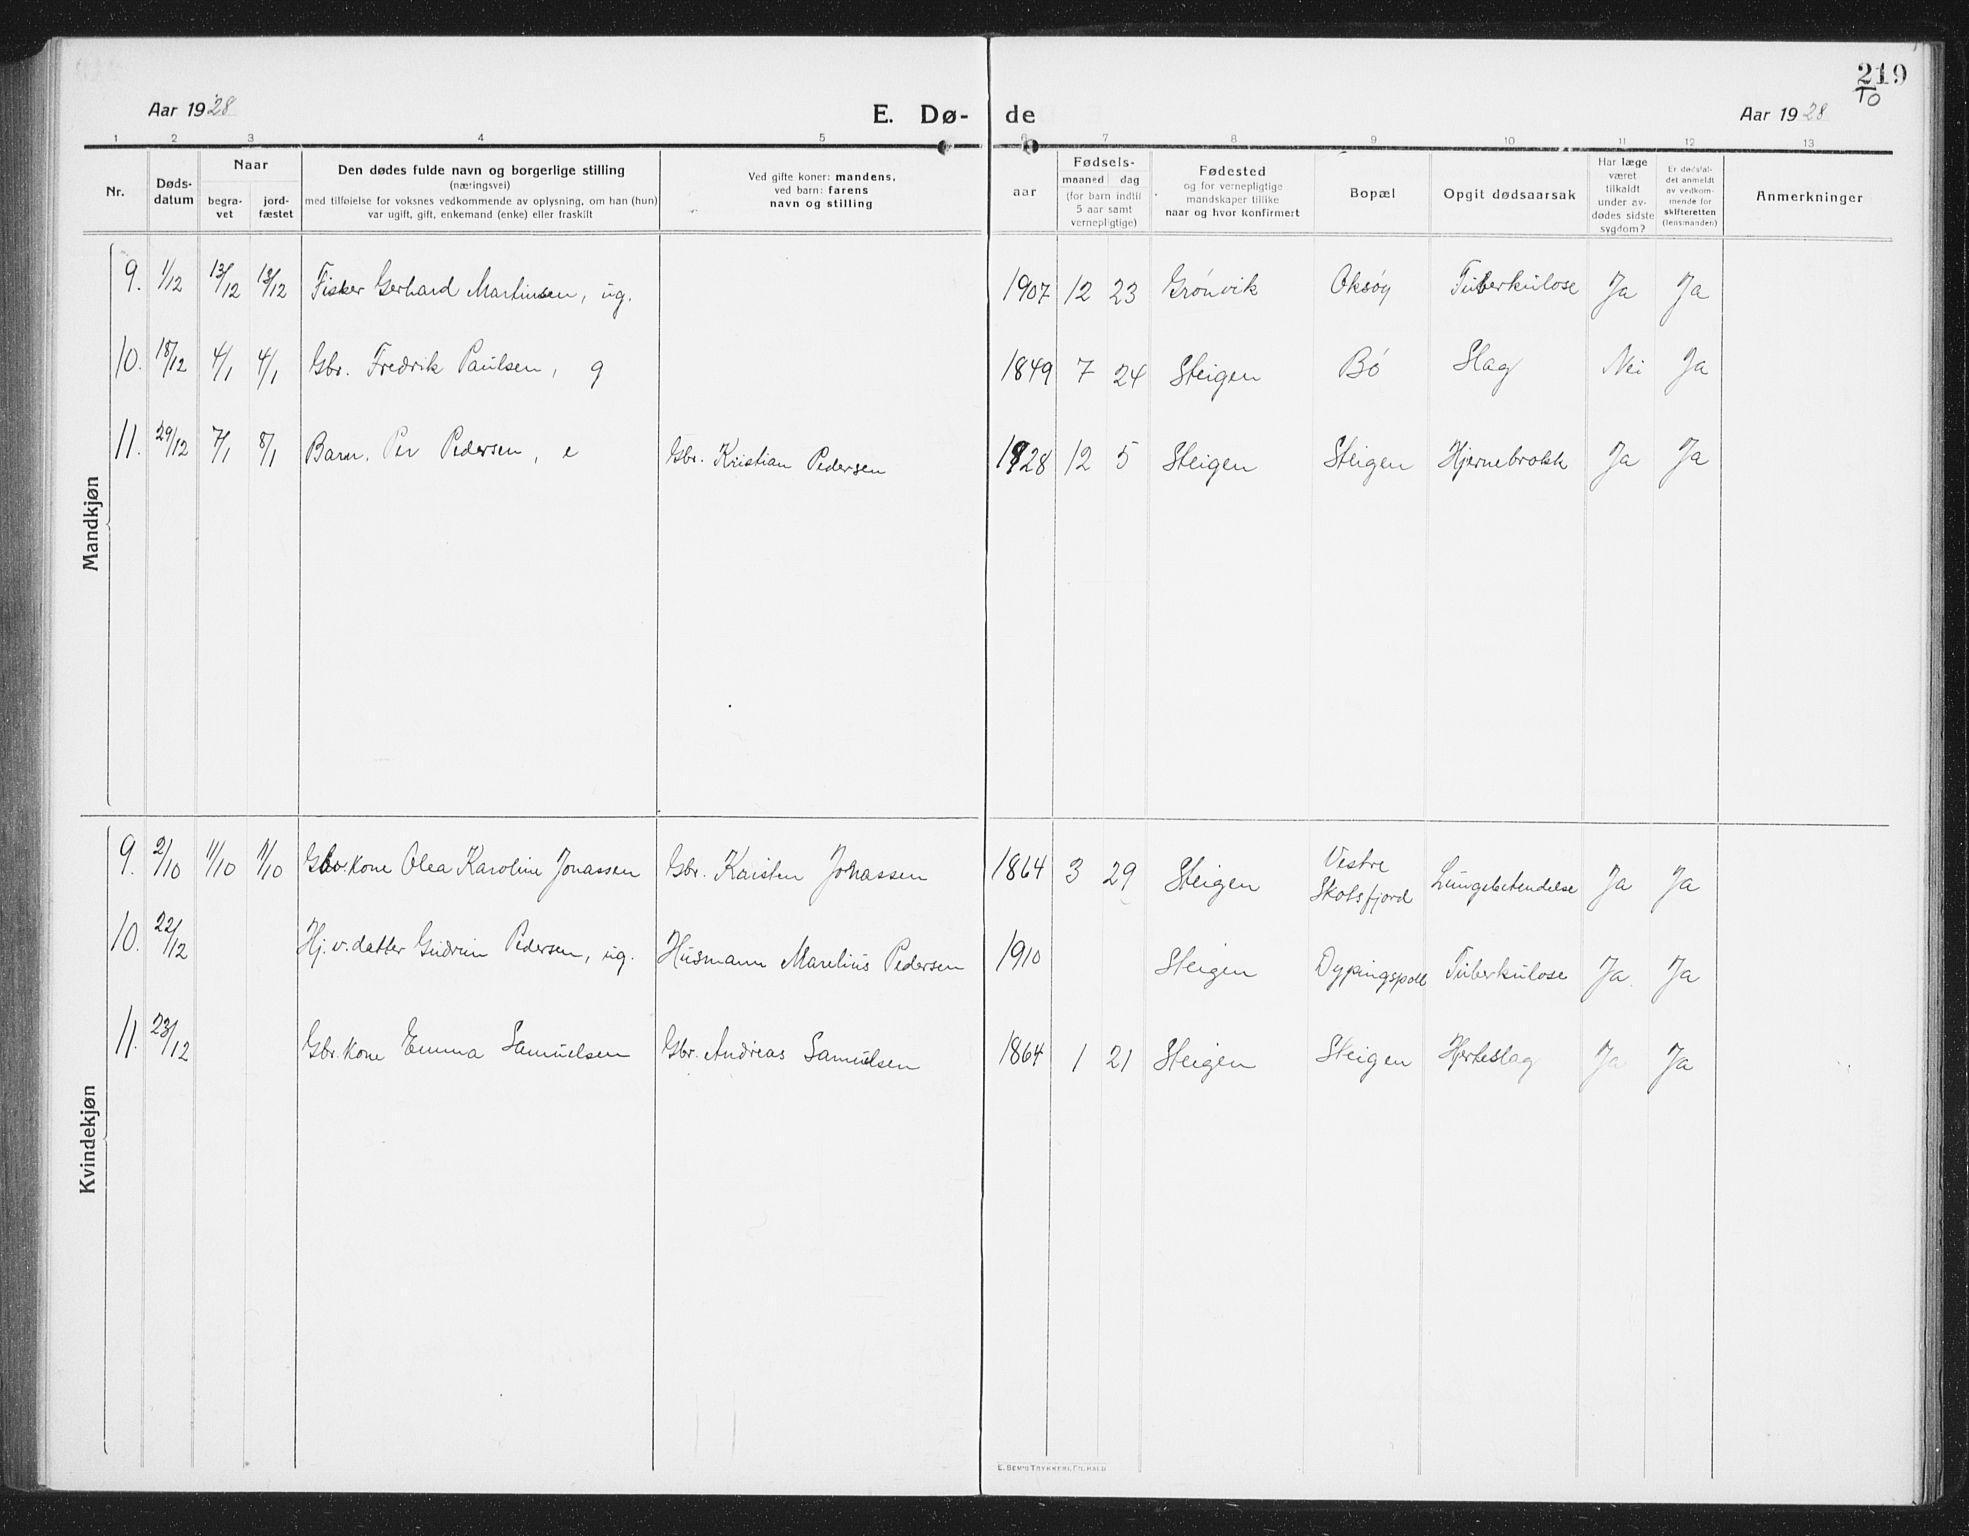 219
10
Aar 1928
E. Dø-
de
Aar 1928
1 2 3 4 5 6 7 8 9 10 11 12 13
Nr.
Døds-
datum
Naar
begra-
vet
jord-
fæstet
Den dødes fulde navn og borgerlige stilling
(næringsvei)
med tilføielse for voksnes vedkommende av oplysning, om han (hun)
var ugift, gift, enkemand (enke) eller fraskilt
Ved gifte koner: mandens,
ved barn: farens
navn og stilling
Fødsels-
aar
maaned dag
(for barn indtil
5 aar samt
vernepligtige)
Fødested
og for vernepligtige
mandskaper tillike
naar og hvor konfirmert
Bopæl
Opgit dødsaarsak
Har læge
været
tilkaldt
under av-
dødes sidste
sygdom?
Er dødsfal-
det anmeldt
av vedkom-
mende for
skifteretten
(lensmanden)
Anmerkninger
Mandkjøn
9. 1/12 13/12 13/12 Fisker Gerhard Martinsen, ug. 1907 12 23 Grønvik Oksøy Tuberkulose Ja Ja
10. 18/12 4/1 4/1 Gbr. Fredrik Paulsen, g 1849 7 24 Steigen Bø Slag Nei Ja
11. 29/12 7/1 8/1 Barn. Per Pedersen, e Gbr. Kristian Pedersen 1928 12 5 Steigen Steigen Hjernebrokk Ja Ja
Kvindekjøn
9. 2/10 11/10 11/10 Gbr.kone Olea Karoline Jonassen Gbr. Karsten Johassen 1864 3 29 Steigen Vestre
Skotsfjord Lungebetendelse Ja Ja
10. 22/12 Hj.v.datter Gudrun Pedersen, ug. Husmann Marelius Pedersen 1910 Steigen Dypingspoll Tuberkulose Ja. Ja
11. 23/12 Gbr.kone Emma Samuelsen Gbr. Andreas Samuelsen 1864 1 21 Steigen Steigen Hjerteslag Ja Ja